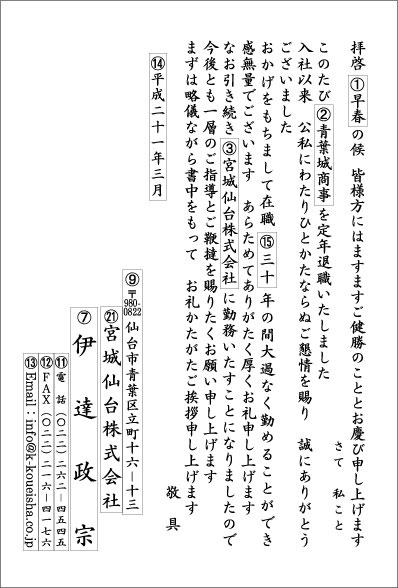 拝啓 ①早春の候 皆様方にはますますご健勝のこととお慶び申し上げます
さて 私こと
このたび②青葉城商事を定年退職いたしました
入社以来 公私にわたりひとかたならぬご懇情を賜り 誠にありがとう
ございました
おかげをもちまして在職⑮三十年の間大過なく勤めることができ
感無量でございます あらためてありがたく厚くお礼申し上げます
なお引き続き③宮城仙台株式会社に勤務いたすことになりましたので
今後とも一層のご指導とご鞭撻を賜りたくお願い申し上げます
まずは略儀ながら書中をもって お礼かたがたご挨拶申し上げます
敬具
⑭平成二十一年三月
⑨〒980-0822 仙台市青葉区立町十六ー十三
㉑宮城仙台株式会社
⑦伊達政宗
⑪電話(〇二二)二六二ー四五四五
⑫FAX(〇二二)二一六ー四一七六
⑬Email：info@k-koueisha.co.jp